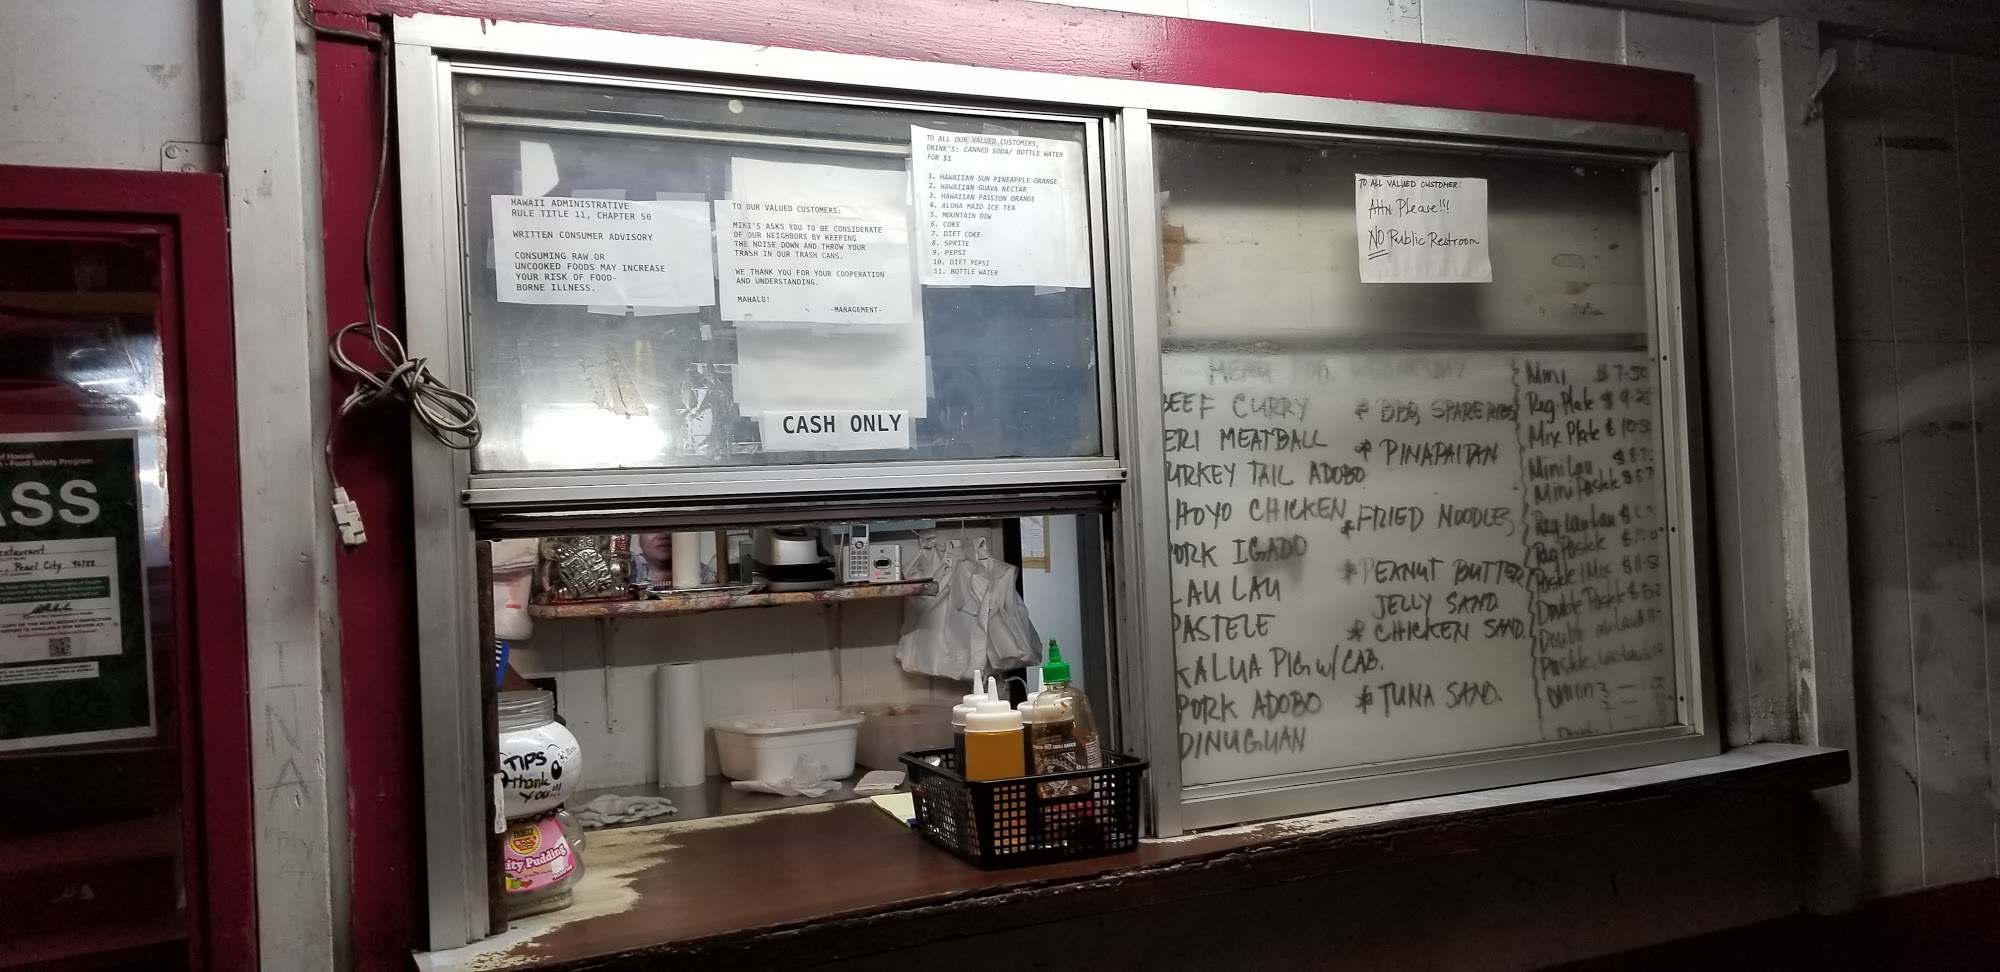 of Hawaii
- Food Safety Program
ASS
estaurant
, Pearl City 96782
HAWAII ADMINISTRATIVE
RULE TITLE 11, CHAPTER 50
WRITTEN CONSUMER ADVISORY
CONSUMING RAW OR
UNCOOKED FOODS MAY INCREASE
YOUR RISK OF FOOD-
BORNE ILLNESS.
TO OUR VALUED CUSTOMERS:
MIKI'S ASKS YOU TO BE CONSIDERATE
OF OUR NEIGHBORS BY KEEPING
THE NOISE DOWN AND THROW YOUR
TRASH IN OUR TRASH CANS.
WE THANK YOU FOR YOUR COOPERATION
AND UNDERSTANDING.
MAHALO!
-MANAGEMENT-
CASH ONLY
TO ALL OUR VALUED CUSTOMERS,
DRINK'S: CANNED SODA/ BOTTLE WATER
FOR $1
1. HAWAIIAN SUN PINEAPPLE ORANGE
2. HAWAIIAN GUAVA NECTAR
3. HAWAIIAN PASSION ORANGE
4. ALOHA MAID ICE TEA
5. MOUNTAIN DEW
6. COKE
7. DIET COKE
8. SPRITE
9. PEPSI
10. DIET PEPSI
11. BOTTLE WATER
TO ALL VALUED CUSTOMER:
Attn Please!!!
NO Public Restroom
MENU FOR
EEF CURRY
ERI MEATBALL
URKEY TAIL ADOBO
HOYO CHICKEN
ORK IGADO
LAU LAU
PASTELE
KALUA PIG w/ CAB.
PORK ADOBO
DINUGUAN
* BBQ SPARERIBS
* PINAPAITAN
* FRIED NOODLES
* PEANUT BUTTER/
JELLY SAND
* CHICKEN SAND.
* TUNA SAND.
Mini $7.50
Reg. Plate $9.25
Mix Plate $10.50
Mini Lau
Mini Pastele
Reg Lau Lau
Reg Pastele
Pastele/Mix
Double Pastele
Double
Pastele
TIPS
Thank
YOU!!!
FAMILY
ity Pudding